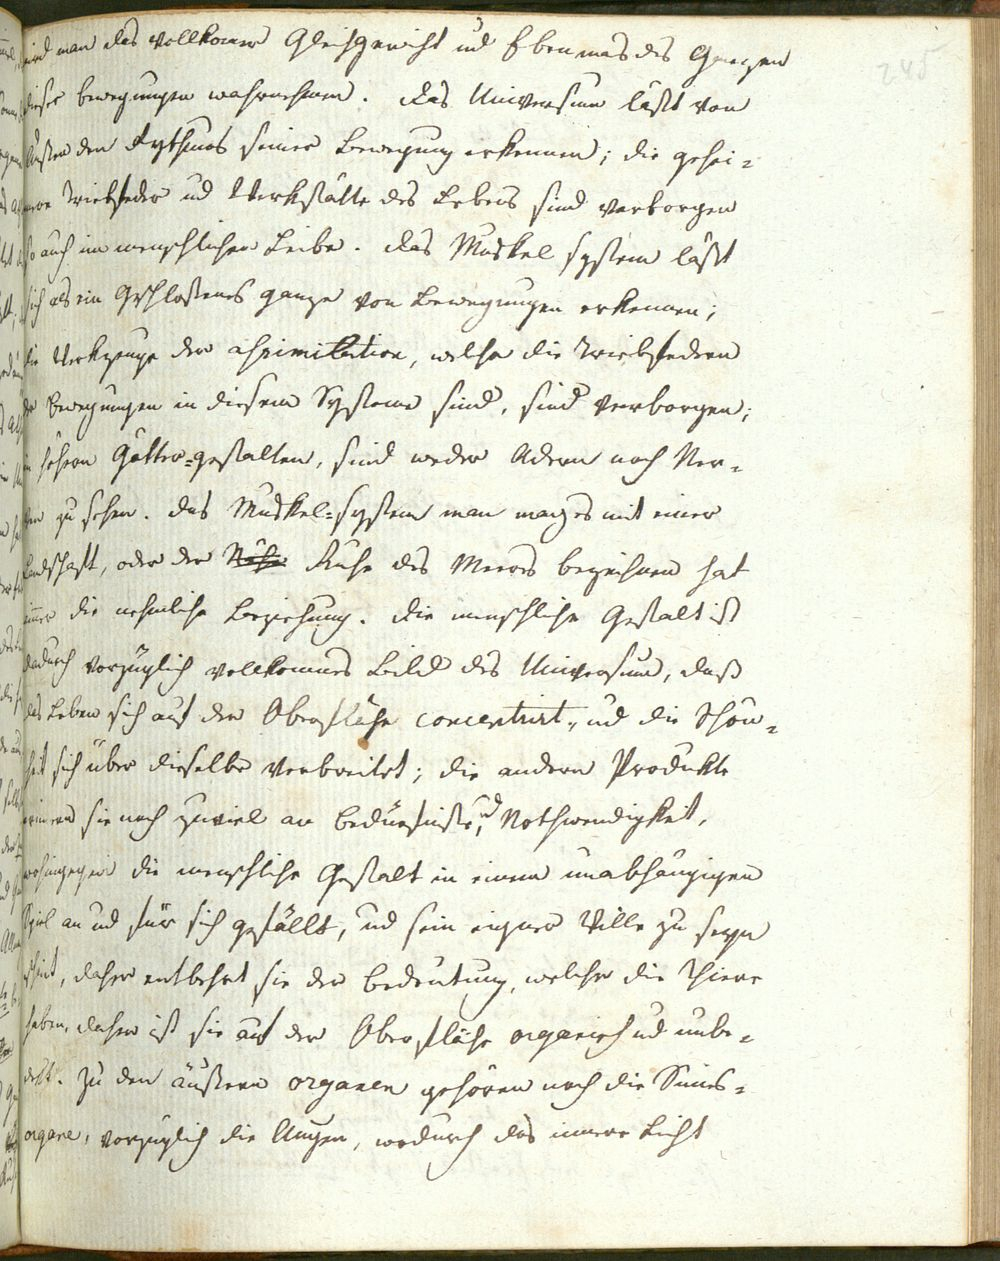 245
wird man das vollkomne Gleichgewicht ud Ebenmas des Ganzen
dieser bewegungen wahrnehmen. das Universum läßt von
Außen den Rythmus seiner Bewegung erkennen; die gehei-
mere Triebfeder ud Werkstätte des Lebens sind verborgen
so auch im menschlichen Leibe. das Muskel system läßt
sich als ein Geschloßenes ganze von Bewegungen erkennen;
die Werkzeuge der assimilation, welche die Triebfedern
der bewegungen in diesem Systeme sind, sind verborgen;
in höhern Götter-gestalten, sind weder Adern noch Ner-
ven zu sehen. das Muskel-system man mag es mit einer
Landschaft, oder der Ruhe des Meeres bezeichnen hat
immer die nehmliche Beziehung. die menschliche Gestalt ist
dadurch vorzüglich vollkomnes Bild des Universum, daß
das Leben sich auf der Oberfläche concentrirt, ud die Schön-
heit sich über dieselbe verbreitet; die andern Produkte
erinnern sie noch zuviel an bedürfniße, ud Nothwendigkeit,
wohingegen die menschliche Gestalt in einem unabhängigen
Spiel an ud für sich gefällt, ud sein eigner Wille zu seyn
scheint, daher entbehrt sie der bedeutung, welche die Thiere
haben, daher ist sie auf der Oberfläche organisch ud unbe-
dekt. Zu den äußern organen gehören noch die Sinnes-
organe, vorzüglich die Augen, wodurch das innere Licht